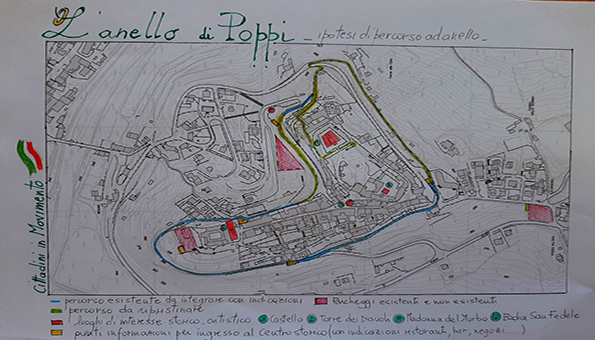 L'anello di Poppi _ ipotesi di percorso ad anello _
Cittadini in Movimento
percorso esistente da integrare con indicazioni
Parcheggi esistenti e non esistenti
percorso da ripristinare
luoghi di interesse storico_artistico 1 Castello 2 Torre dei Diavoli 3 Madonna del Morbo 4 Badia San Fedele
punti informazioni per ingresso al Centro storico (con indicazioni ristoranti, bar, negozi....)